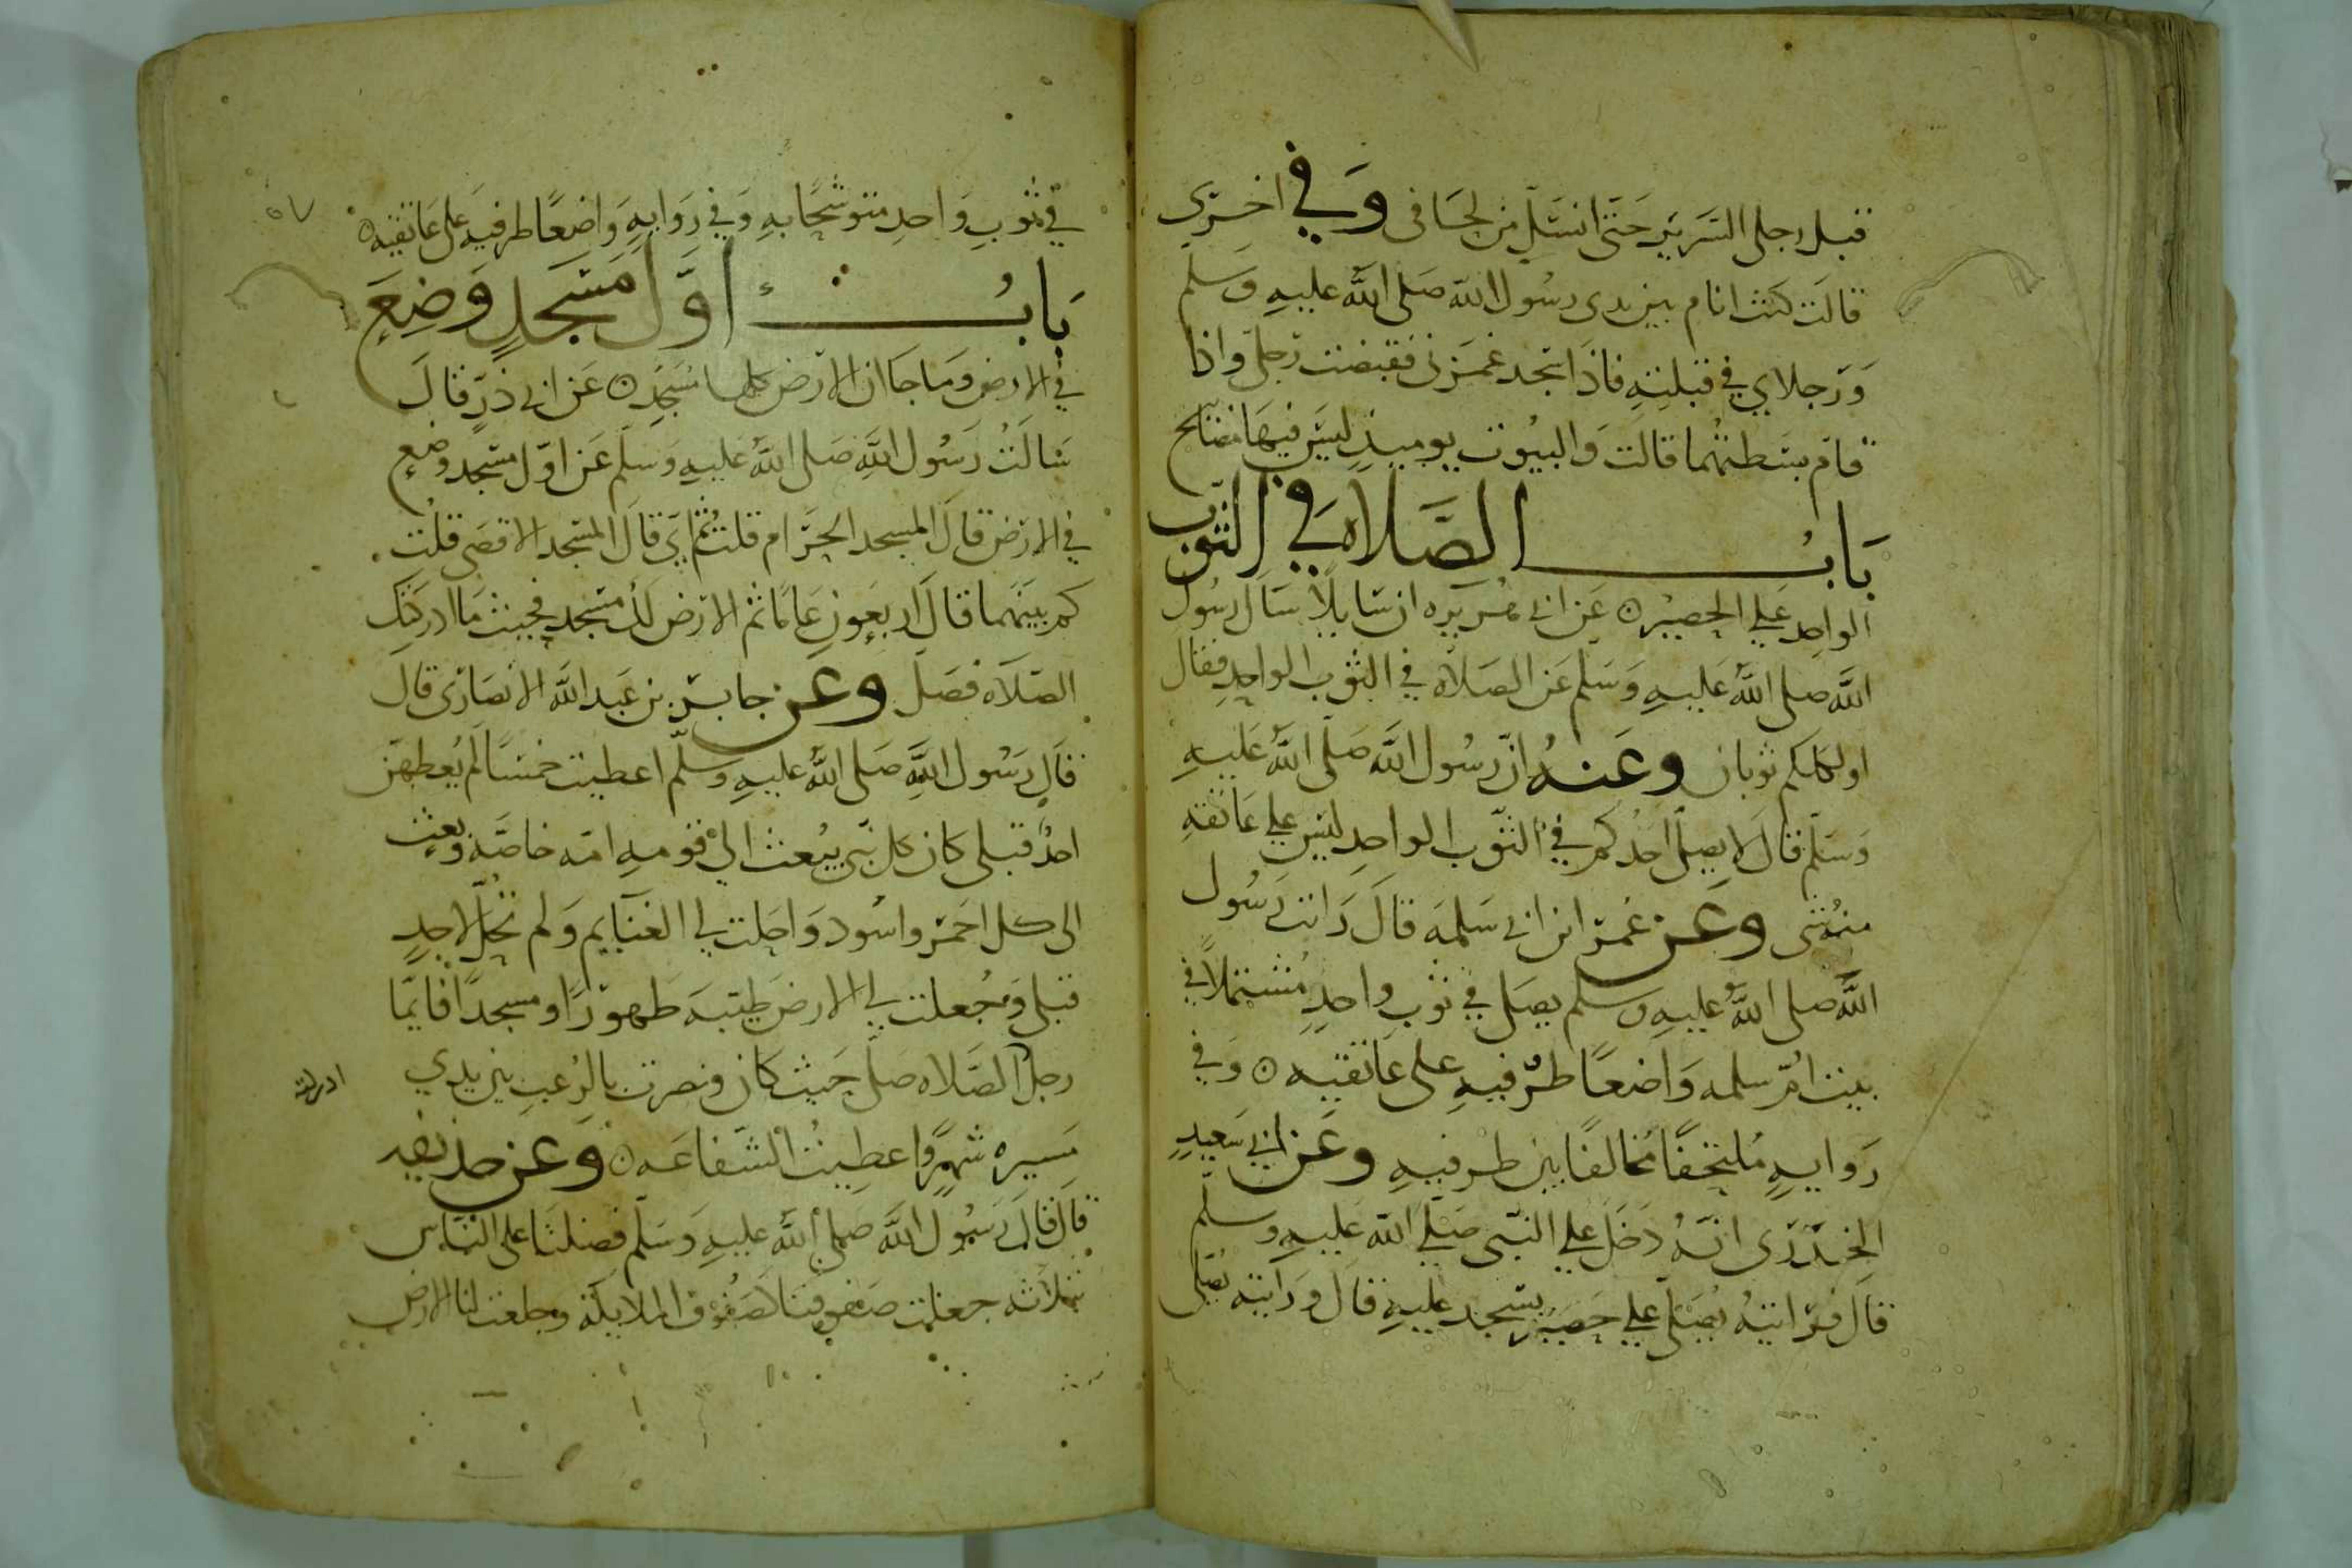 قبل رجلى السرير حتى انسل من لحافى وفي اخرى
قالت كنت انام بين يدى رسول الله صلى الله عليه وسلم
ورجلاي في قبلته فاذا سجد غمزنى فقبضت رجلي واذا
قام بسطتهما قالت والبيوت يوميذ ليس فيها مصابيح
باب الصلاه في الثوب
الواحد علي الحصير ه عن ابي هريره ان سايلا سال رسول
الله صلى الله عليه وسلم عن الصلاه في الثوب الواحد فقال
اولكلكم ثوبان وعنه ان رسول الله صلى الله عليه
وسلم قال لا يصلي احدكم في الثوب الواحد ليس علي عاتقه
منه شى وعن عمر ابن ابي سلمه قال رايت رسول
الله صلى الله عليه وسلم يصلي في ثوب واحد مشتملا في
بيت ام سلمه واضعا طرفيه على عاتقيه ه وفي
روايه ملتحفا مخالفا بين طرفيه وعن ابي سعيد
الخدرى انه دخل علي النبي صلي الله عليه وسلم
قال فرايته يصلي علي حصير يسجد عليه قال ورايته يصلى
٥٧
في ثوب واحد متوشحا به وفي روايه واضعا طرفيه على عاتقيه ه
باب اول مسجد وضع
في الارض وما جا ان الارض كلها مسجد ه عن ابي ذر قال
سالت رسول الله صلى الله عليه وسلم عن اول مسجد وضع
في الارض قال المسجد الحرام قلت ثم اي قال المسجد الاقصى قلت
كم بينهما قال اربعون عاما ثم الارض لك مسجد فحيث ما ادركتك
الصلاه فصل وعن جابر بن عبد الله الانصارى قال
قال رسول الله صلى الله عليه وسلم اعطيت خمسا لم يعطهن
احد قبلى كان كل نبي يبعث الى قومه امه خاصة وبعثت
الى كل احمر واسود واحلت لي الغنايم ولم تحل لاحد
قبلى وجعلت لي الارض طيبه طهورا ومسجدا فايما
رجل الصلاه صلى حيث كان ونصرت بالرعب بين يدي
ادركته
مسيره شهر واعطيت الشفاعه ه وعن حذيفه
قال قال رسول الله صلى الله عليه وسلم فضلنا على الناس
بثلاثه جعلت صفوفنا كصفوف الملايكة وجعلت لنا الارض